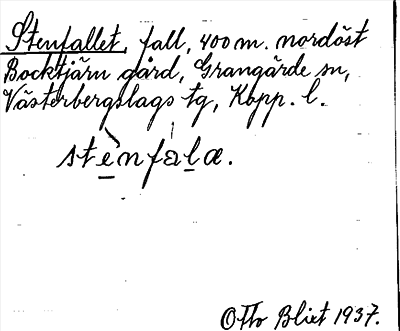 Stenfallet, fall, 400 m. nordöst
Bocktjärn gård, Grangärde sn,
Västerbergslags tg, Kopp. l.
stènfala.
Otto Blixt 1937.